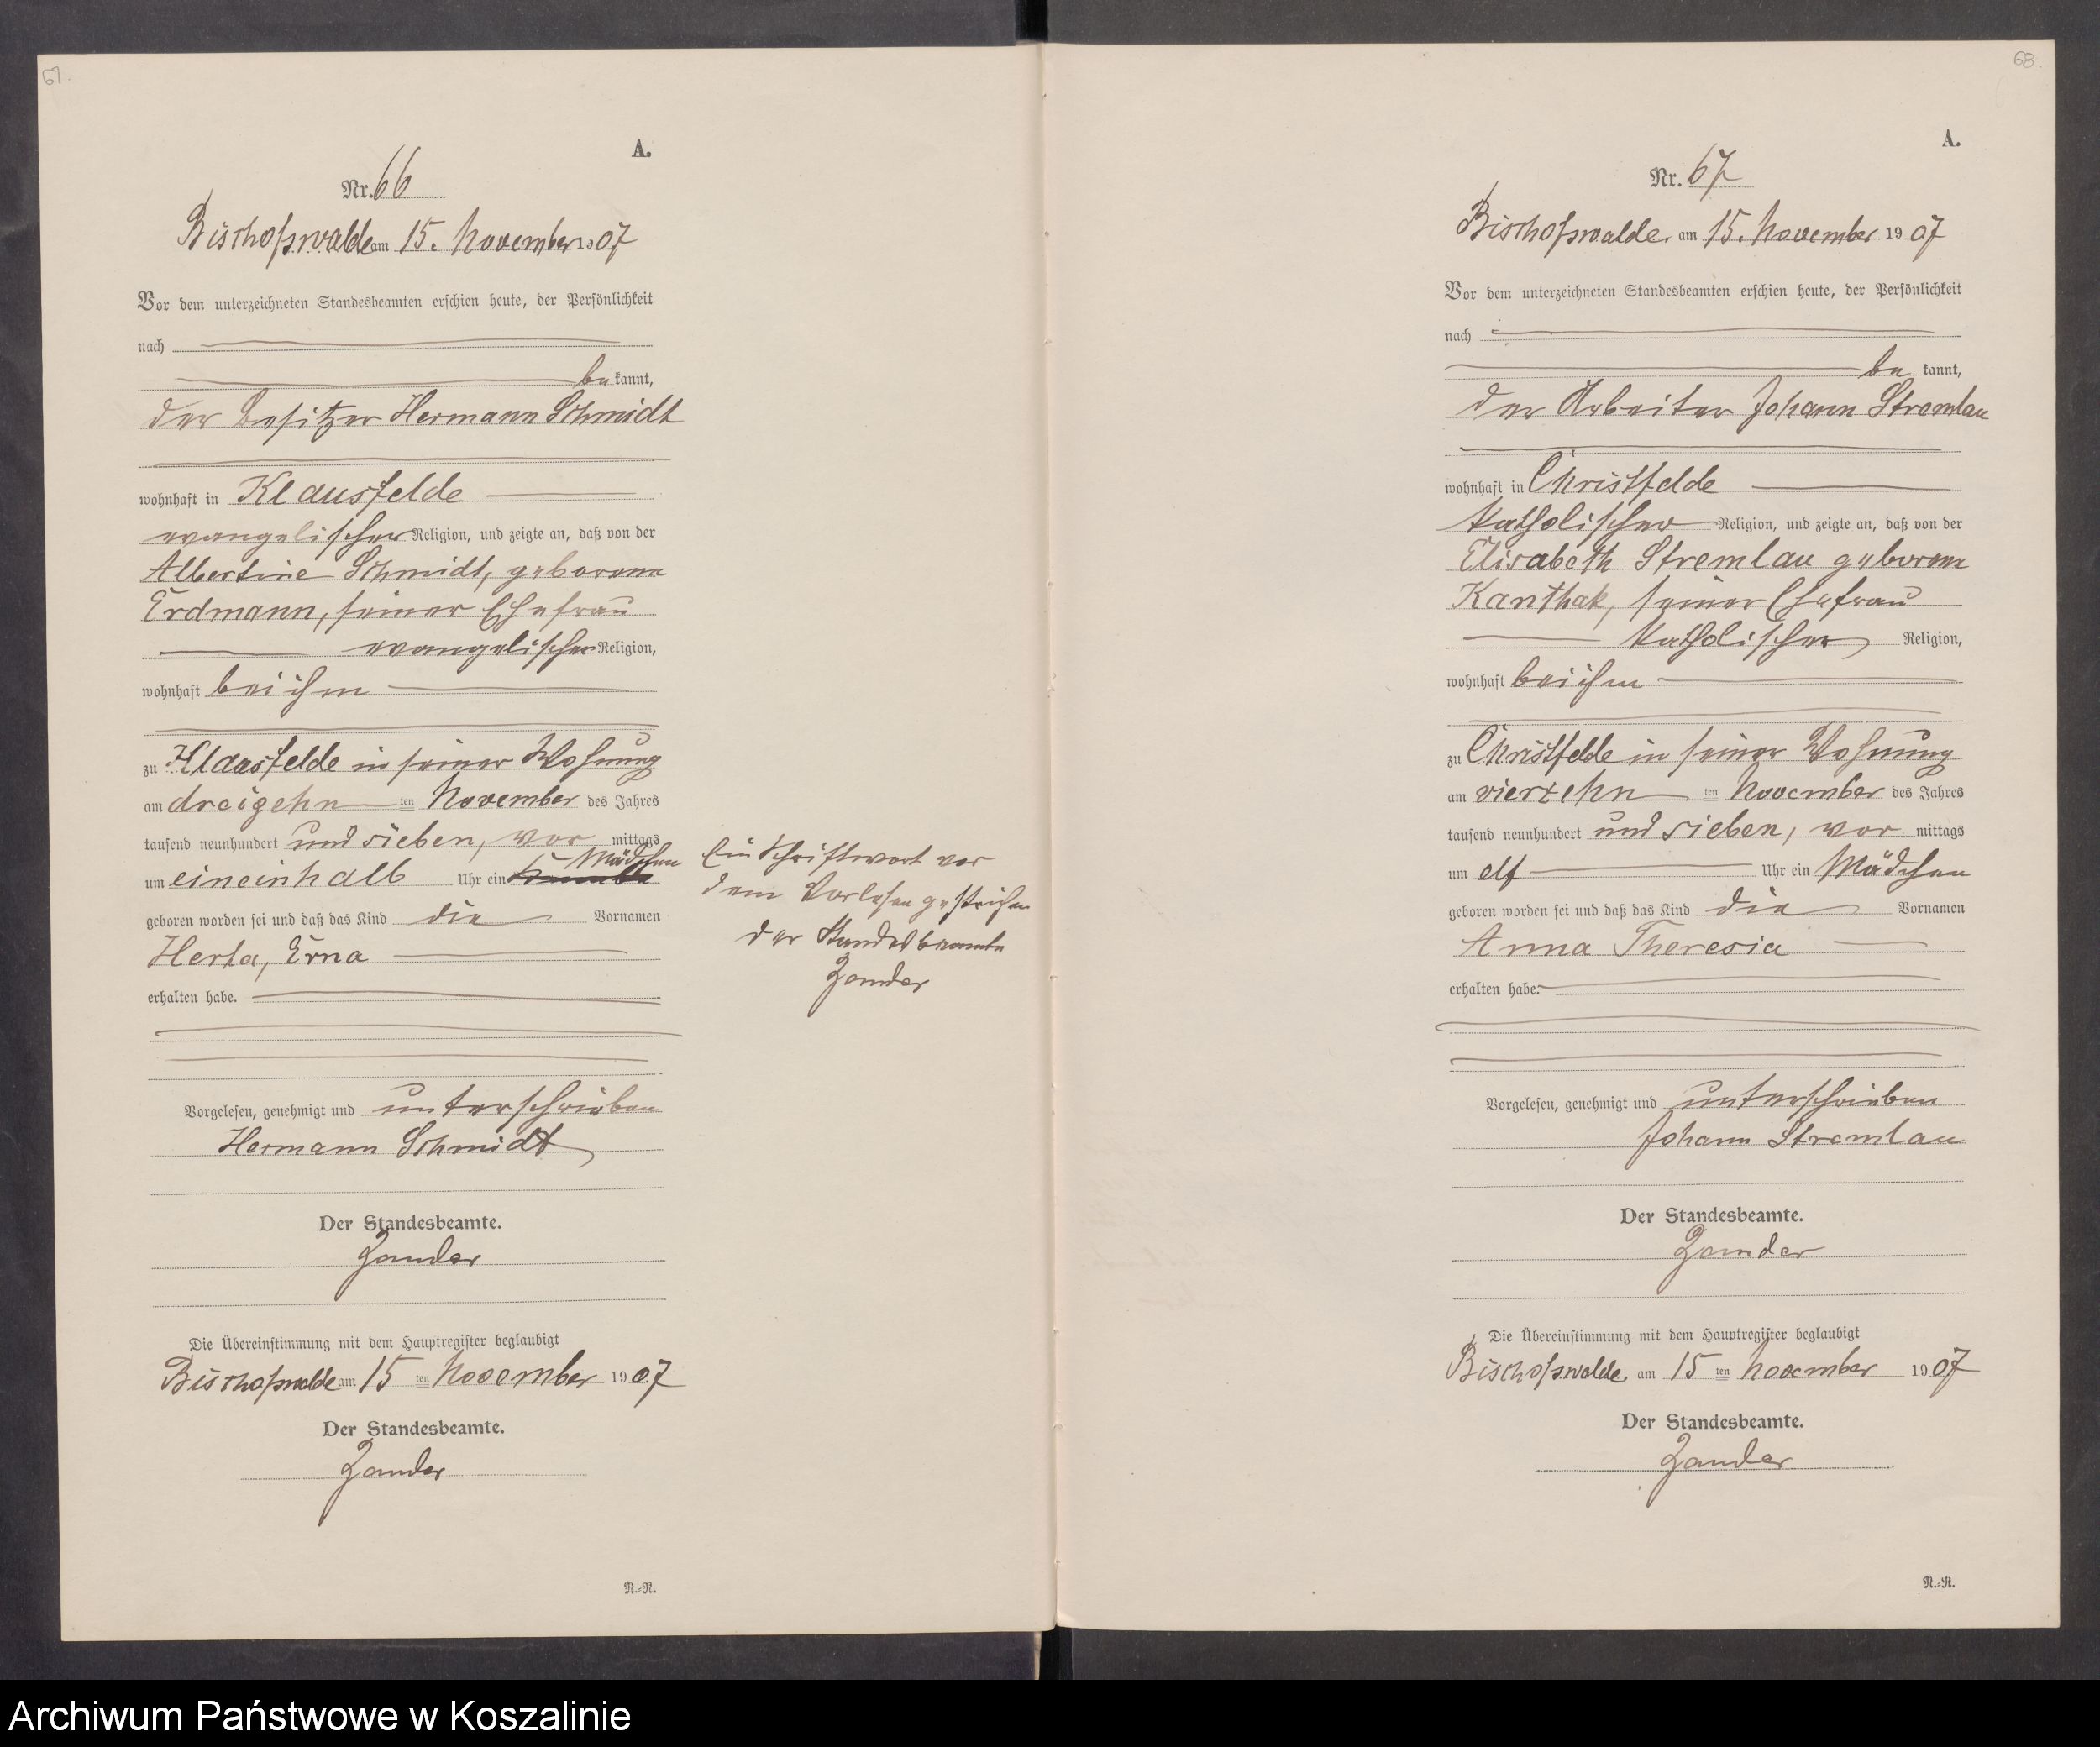 67.
A.
Nr. 66
Bischofswalde am 15. November 1907
Vor dem unterzeichneten Standesbeamten erschien heute, der Persönlichkeit
nach
be kannt,
der Besitzer Hermann Schmidt
wohnhaft in Klausfelde
evangelischer Religion, und zeigte an, daß von der
Albertine Schmidt, geborene
Erdmann, seiner Ehefrau
evangelischer Religion,
wohnhaft bei ihm
zu Klausfelde in seiner Wohnung
am dreizehn ten November des Jahres
tausend neunhundert und sieben, vor mittags
Mädchen
um eineinhalb Uhr ein Knabe
geboren worden sei und daß das Kind die Vornamen
Herta, Erna
erhalten habe.
Vorgelesen, genehmigt und unterschrieben
Hermann Schmidt
Der Standesbeamte.
Zander
Die Übereinstimmung mit dem Hauptregister beglaubigt
Bischofswalde am 15 ten November 1907
Der Standesbeamte.
Zander
N.=R.
Ein Schriftwort vor
dem Vorlesen gestrichen
der Standesbeamte
Zander
68.
A.
Nr. 67
Bischofswalde. am 15. November 1907
Vor dem unterzeichneten Standesbeamten erschien heute, der Persönlichkeit
nach
be kannt,
der Arbeiter Johann Stremlau
wohnhaft in Christfelde
katholischer Religion, und zeigte an, daß von der
Elisabeth Stremlau geborene
Kanthak, seiner Ehefrau
katholischer Religion,
wohnhaft bei ihm
zu Christfelde in seiner Wohnung
am vierzehn ten November des Jahres
tausend neunhundert und sieben, vor mittags
um elf Uhr ein Mädchen
geboren worden sei und daß das Kind die Vornamen
Anna Theresia
erhalten habe.
Vorgelesen, genehmigt und unterschrieben
Johann Stremlau
Der Standesbeamte.
Zander
Die Übereinstimmung mit dem Hauptregister beglaubigt
Bischofswalde, am 15 ten November 1907
Der Standesbeamte.
Zander
N.=R.
Archiwum Państwowe w Koszalinie